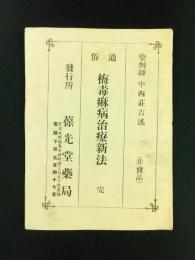 藥劑師 中西荘吉述
（非賣品）
通俗
梅毒痳病治療新法 完
發行所
葆光堂藥局